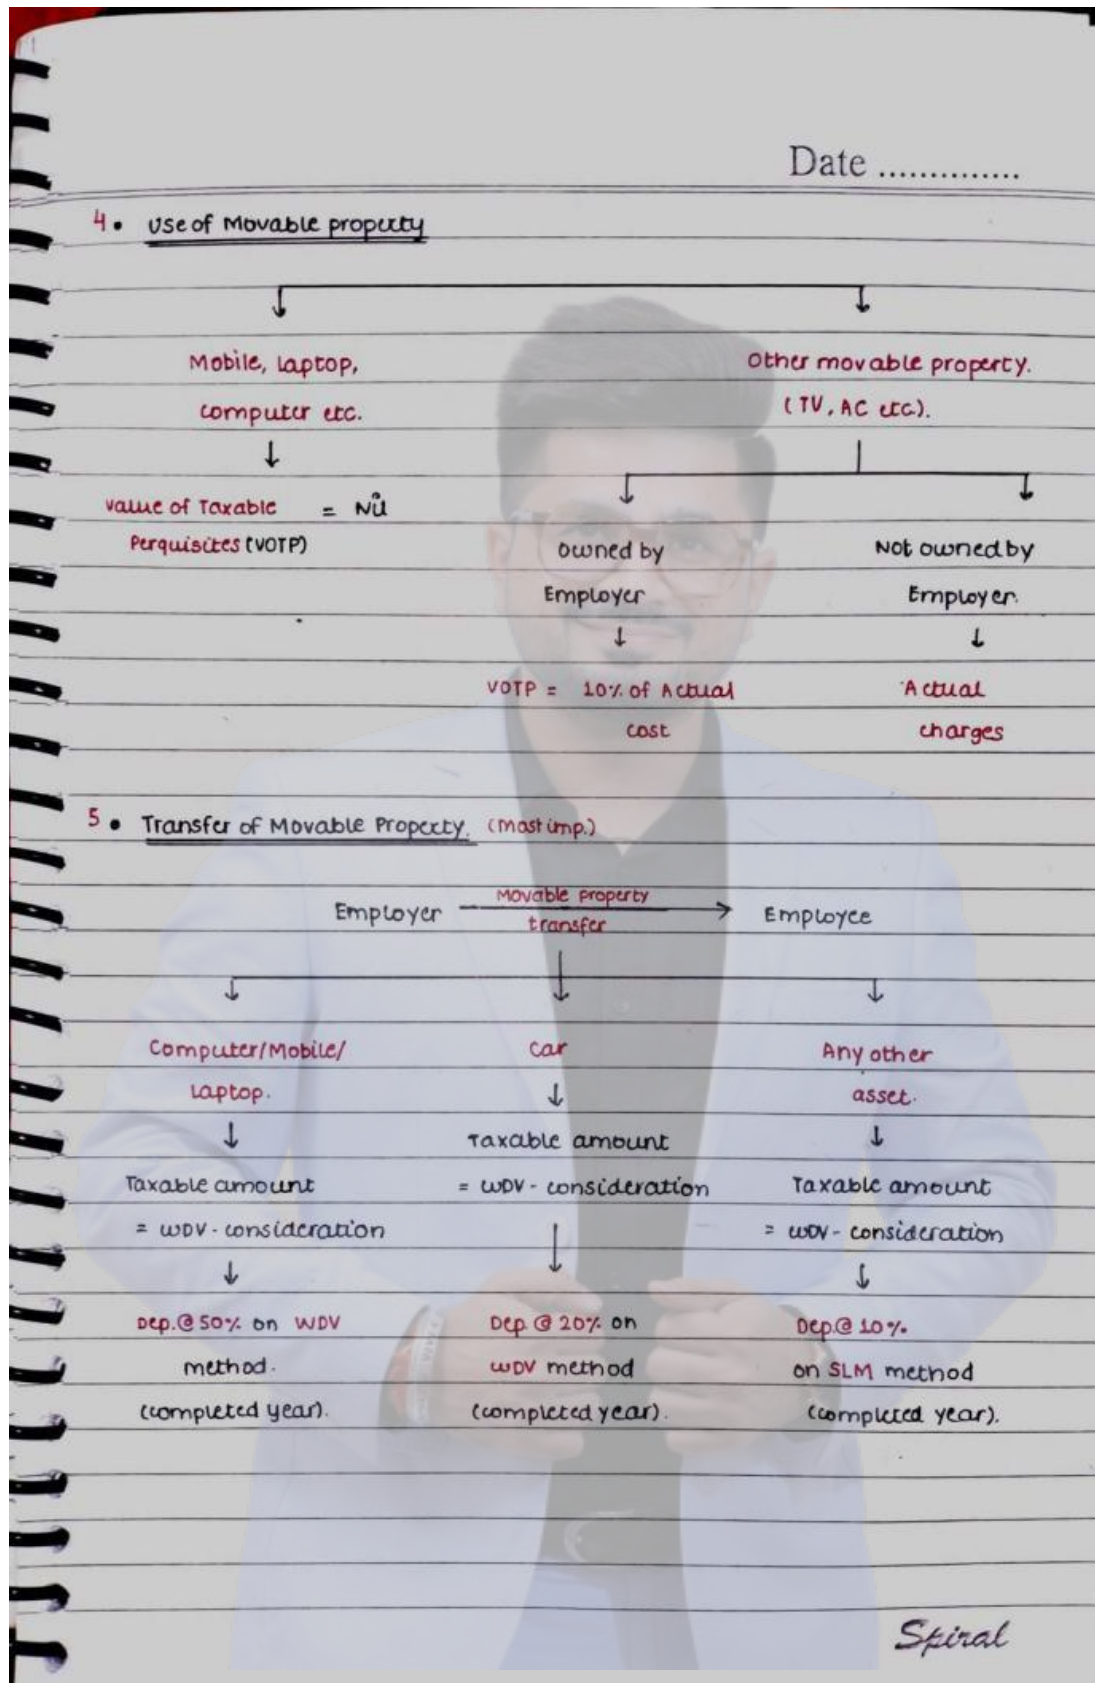 Date ..............
4. Use of Movable property
Mobile, laptop,
computer etc.
Other movable property.
(TV, AC etc).
Value of Taxable = Nil
Perquisites (VOTP)
Owned by
Employer
Not owned by
Employer.
VOTP = 10% of Actual
cost
Actual
charges
5. Transfer of Movable Property. (most imp.)
Employer
Movable property
transfer
Employee
Computer/Mobile/
Laptop.
Taxable amount
= WDV - consideration
Dep.@ 50% on WDV
method.
(completed year).
Car
Taxable amount
= WDV - consideration
Dep. @ 20% on
WDV method
(completed year).
Any other
asset.
Taxable amount
= WDV - consideration
Dep.@ 10%
on SLM method
(completed year).
Spiral